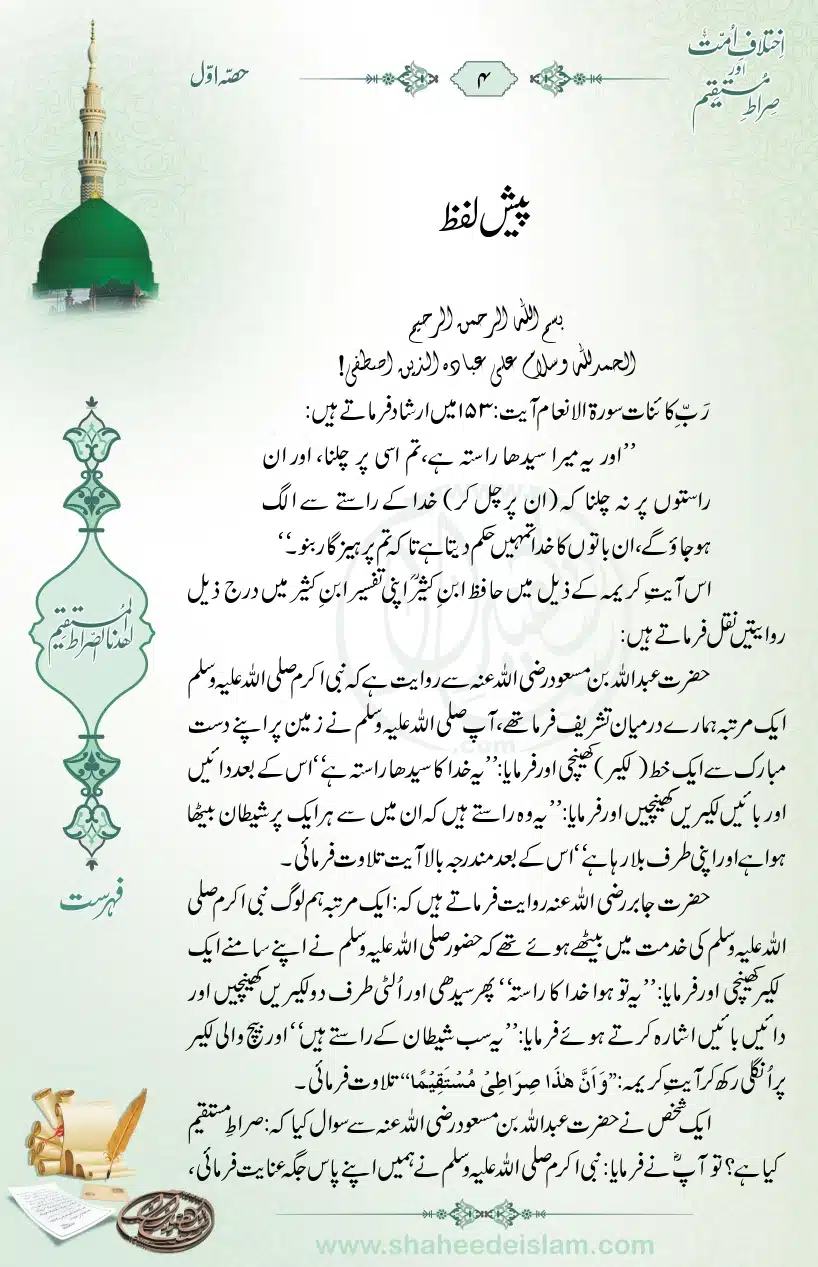 اِختلافِ اُمّت
اور
صِراطِ مُستقیم
۴
حصّہ اوّل
پیش لفظ
بسم اللہ الرحمن الرحیم
الحمدللہ وسلام علی عبادہ الذین اصطفی!
رَبِّ کائنات سورۃ الانعام آیت: ۱۵۳ میں ارشاد فرماتے ہیں:
’’اور یہ میرا سیدھا راستہ ہے، تم اسی پر چلنا، اور ان
راستوں پر نہ چلنا کہ (ان پر چل کر) خدا کے راستے سے الگ
ہوجاؤ گے، ان باتوں کا خدا تمہیں حکم دیتا ہے تاکہ تم پرہیزگار بنو۔‘‘
اس آیتِ کریمہ کے ذیل میں حافظ ابنِ کثیرؒ اپنی تفسیر ابنِ کثیر میں درج ذیل
روایتیں نقل فرماتے ہیں:
حضرت عبداللہ بن مسعود رضی اللہ عنہ سے روایت ہے کہ نبی اکرم صلی اللہ علیہ وسلم
ایک مرتبہ ہمارے درمیان تشریف فرما تھے، آپ صلی اللہ علیہ وسلم نے زمین پر اپنے دست
مبارک سے ایک خط (لکیر) کھینچی اور فرمایا: ’’یہ خدا کا سیدھا راستہ ہے‘‘ اس کے بعد دائیں
اور بائیں لکیریں کھینچیں اور فرمایا: ’’یہ وہ راستے ہیں کہ ان میں سے ہر ایک پر شیطان بیٹھا
ہوا ہے اور اپنی طرف بلا رہا ہے‘‘ اس کے بعد مندرجہ بالا آیت تلاوت فرمائی۔
حضرت جابر رضی اللہ عنہ روایت فرماتے ہیں کہ: ایک مرتبہ ہم لوگ نبی اکرم صلی
اللہ علیہ وسلم کی خدمت میں بیٹھے ہوئے تھے کہ حضور صلی اللہ علیہ وسلم نے اپنے سامنے ایک
لکیر کھینچی اور فرمایا: ’’یہ تو ہوا خدا کا راستہ‘‘ پھر سیدھی اور اُلٹی طرف دو لکیریں کھینچیں اور
دائیں بائیں اشارہ کرتے ہوئے فرمایا: ’’یہ سب شیطان کے راستے ہیں‘‘ اور بیچ والی لکیر
پر اُنگلی رکھ کر آیتِ کریمہ: ’’وَاَنَّ هٰذَا صِرَاطِیْ مُسْتَقِیْمًا‘‘ تلاوت فرمائی۔
ایک شخص نے حضرت عبداللہ بن مسعود رضی اللہ عنہ سے سوال کیا کہ: صراطِ مستقیم
کیا ہے؟ تو آپؓ نے فرمایا: نبی اکرم صلی اللہ علیہ وسلم نے ہمیں اپنے پاس جگہ عنایت فرمائی،
اھدنا الصّراط المُستقیم
فہرست
www.shaheedeislam.com